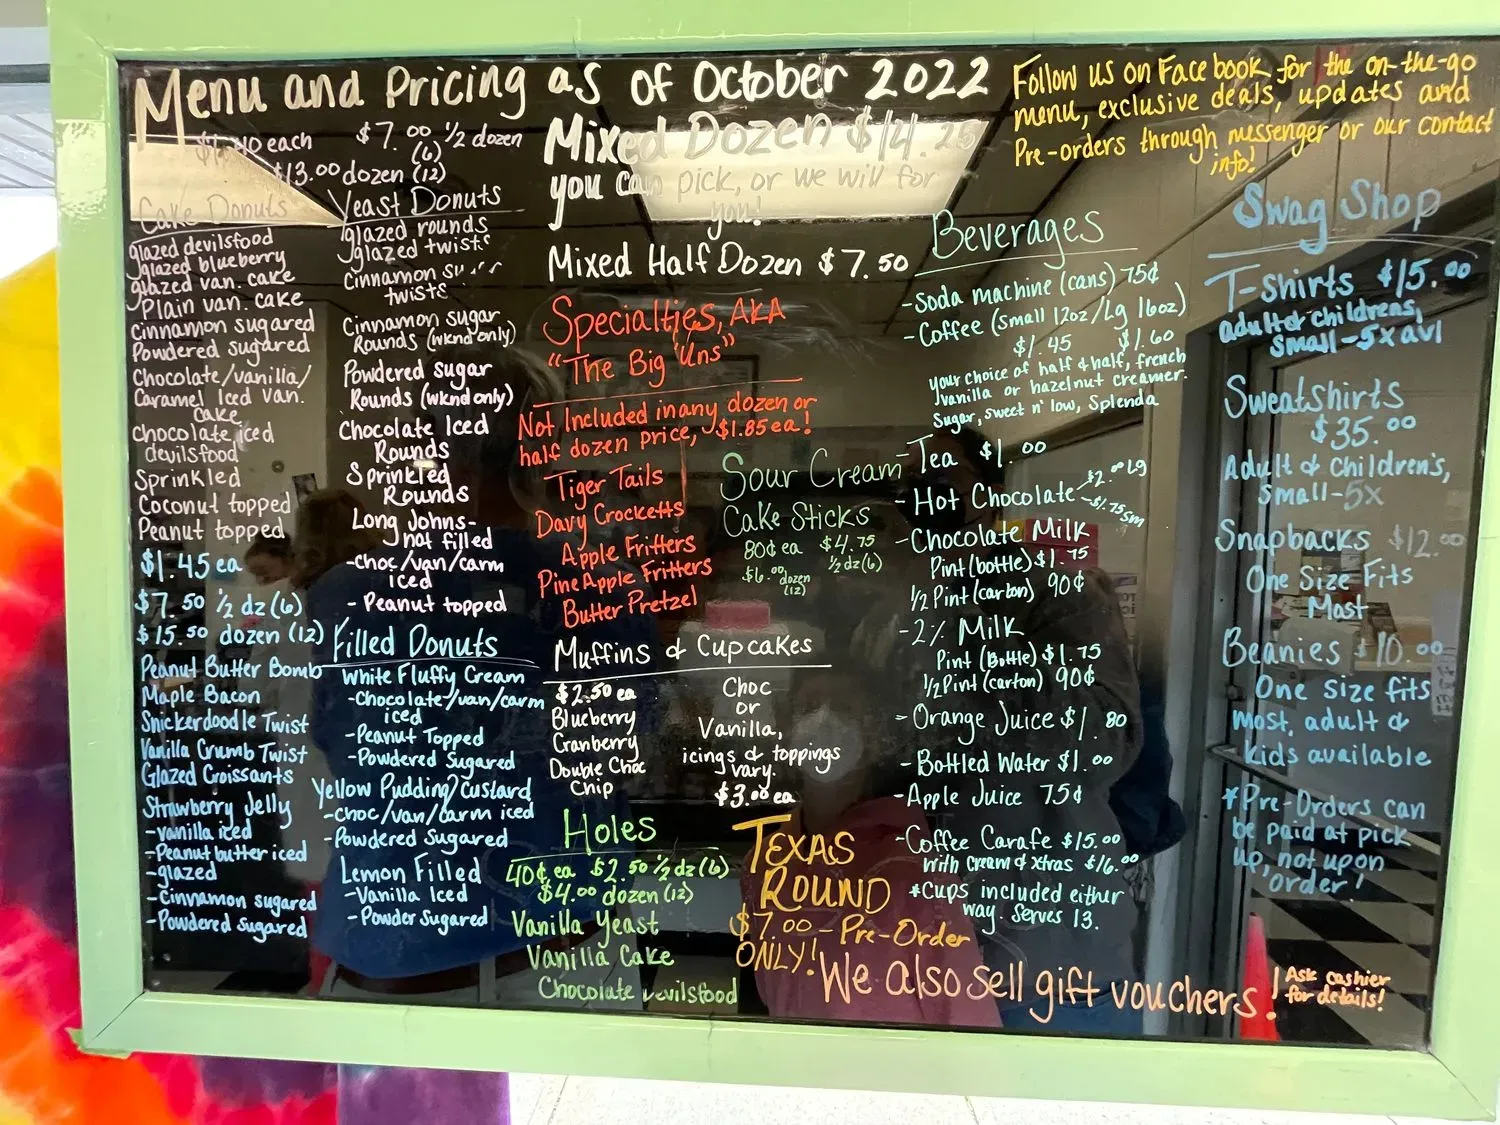 Menu and Pricing as of October 2022
each
$7.00 ½ dozen
(6)
$13.00 dozen (12)
Cake Donuts
glazed devilsfood
glazed blueberry
glazed van. cake
Plain van. cake
Cinnamon sugared
Powdered sugared
Chocolate/vanilla/
Caramel Iced van.
cake
Chocolate iced
devilsfood
Sprinkled
Coconut topped
Peanut topped
$1.45 ea
$7.50 ½ dz (6)
$15.50 dozen (12)
Peanut Butter Bomb
Maple Bacon
Snickerdoodle Twist
Vanilla Crumb Twist
Glazed Croissants
Strawberry Jelly
-vanilla iced
-Peanut butter iced
-glazed
-Cinnamon sugared
-Powdered sugared
Yeast Donuts
glazed rounds
glazed twists
cinnamon
twists
Cinnamon sugar
Rounds (wknd only)
Powdered sugar
Rounds (wknd only)
Chocolate Iced
Rounds
Sprinkled
Rounds
Long Johns-
not filled
-choc/van/carm
iced
- Peanut topped
Filled Donuts
White Fluffy Cream
-Chocolate/van/carm
iced
-Peanut Topped
-Powdered Sugared
Yellow Pudding/Custard
-choc/van/carm iced
-Powdered Sugared
Lemon Filled
-Vanilla Iced
-Powder Sugared
Mixed Dozen $14.25
you can pick, or we will for
you!
Mixed Half Dozen $7.50
Specialties, AKA
"The Big 'Uns"
Not Included in any dozen or
half dozen price, $1.85 ea!
Tiger Tails
Davy Crocketts
Apple Fritters
PineApple Fritters
Butter Pretzel
Sour Cream
Cake Sticks
80¢ ea $4.75
½ dz (6)
$6.00 dozen
(12)
Muffins & Cupcakes
$2.50 ea
Blueberry
Cranberry
Double Choc
Chip
Choc
or
Vanilla,
icings & toppings
vary.
$3.00 ea
Holes
40¢ ea $2.50 ½ dz (6)
$4.00 dozen (12)
Vanilla Yeast
Vanilla Cake
Chocolate devilsfood
TEXAS
ROUND
$7.00 - Pre-Order
ONLY!
Follow us on Facebook for the on-the-go
menu, exclusive deals, updates and
Pre-orders through messenger or our contact
info!
Beverages
-Soda machine (cans) 75¢
-Coffee (small 12oz/Lg 16oz)
$1.45 $1.60
your choice of half & half, french
vanilla or hazelnut creamer.
Sugar, sweet n' low, Splenda
-Tea $1.00
- Hot Chocolate -$2.00 Lg
-$1.75 sm
-Chocolate Milk
Pint (bottle) $1.75
½ Pint (carton) 90¢
-2% Milk
Pint (Bottle) $1.75
½ Pint (carton) 90¢
-Orange Juice $1.80
-Bottled Water $1.00
-Apple Juice 75¢
-Coffee Carafe $15.00
with cream & xtras $16.00
*Cups included either
way. Serves 13.
Swag Shop
T-shirts $15.00
adult & childrens,
small-5x avl
Sweatshirts
$35.00
Adult & Children's,
Small-5X
Snapbacks $12.00
One Size Fits
Most
Beanies $10.00
One size fits
most, adult &
kids available
*Pre-Orders can
be paid at pick
up, not upon
order!
We also sell gift vouchers!
Ask cashier
for details!